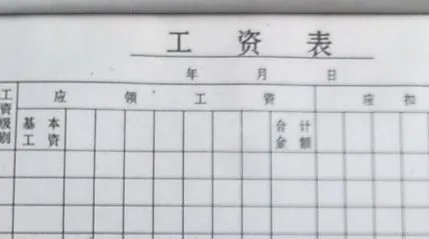 工资表
年 月 日
工资级别 应领工资 应扣
基本工资 合计金额